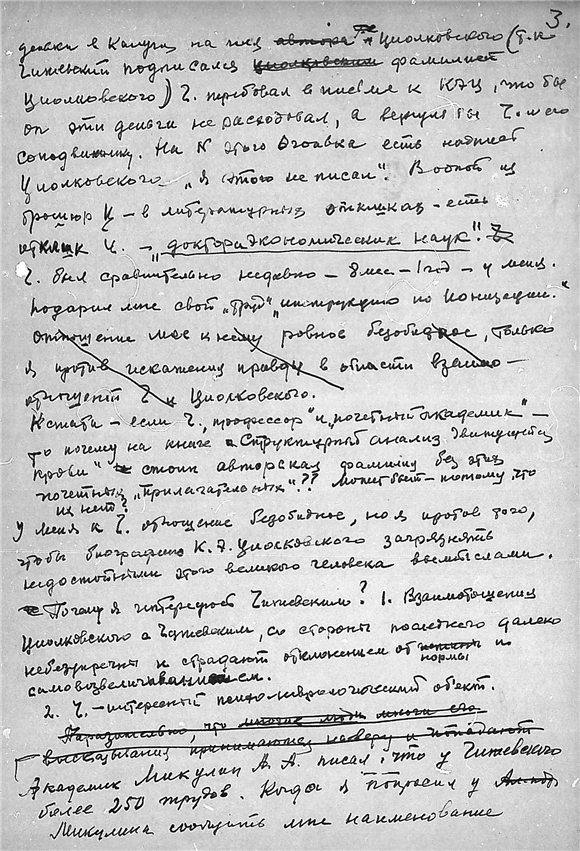 3.
деньги в Калугу на имя автора Циолковского (т.к.
Чижевский подписался Циолковским фамилией
Циолковского) Ч. требовал в письме к КЭЦ, что бы
он эти деньги не расходовал, а вернул бы Ч. и его
На № этого есть надпись
Циолковского "Я этого не писал". В одной из
брошюр Ц – в литературных откликах – есть
отклик Ч. – "доктора экономических наук".
Ч. был сравнительно недавно – 8 мес – 1 год – у меня.
Подарил мне свой "труд" "инструкцию по ионизации."
отношение мое к нему ровное безобидное, только
я против искажения правды в области взаимо-
отношений Ч. и Циолковского.
Кстати – если Ч. "профессор" и "почетный академик" –
то почему на книге "Структурный анализ движущейся
крови" стоит авторская фамилия без этих
почетных "прилагательных"?? Может быть – потому что
их нет?
У меня к Ч. отношение безобидное, но я против того,
чтобы биографию К.Э. Циолковского загрязнять
недостойными этого великого человека вымыслами.
Почему я интересуюсь Чижевским? 1. Взаимоотношения
Циолковского с Чижевским, со стороны последнего далеко
небезупречны и страдают отклонением от нормы по
самовозвеличиванием.
2. Ч. – интересный психоневрологический объект.
Поразительно, что многие люди многие его
высказывания принимают на веру и попадают
Академик Микулин А.А. писал, что у Чижевского
более 250 трудов. Когда я попросил у
Микулина сообщить мне наименование